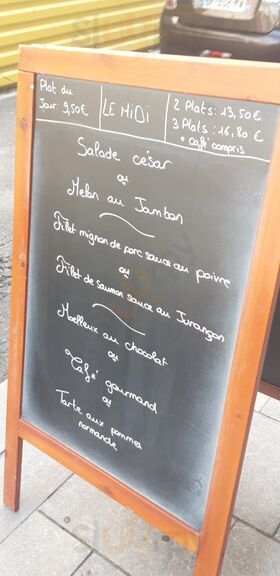 Plat du
Jour: 9,50€
LE MiDi
2 Plats: 13,50€
3 Plats: 16,80€
• Café compris
Salade césar
ou
Melon au Jambon
Filet mignon de porc sauce au poivre
ou
Filet de saumon sauce au Jurançon
Moelleux au chocolat
ou
Café gourmand
ou
Tarte aux pommes
normande